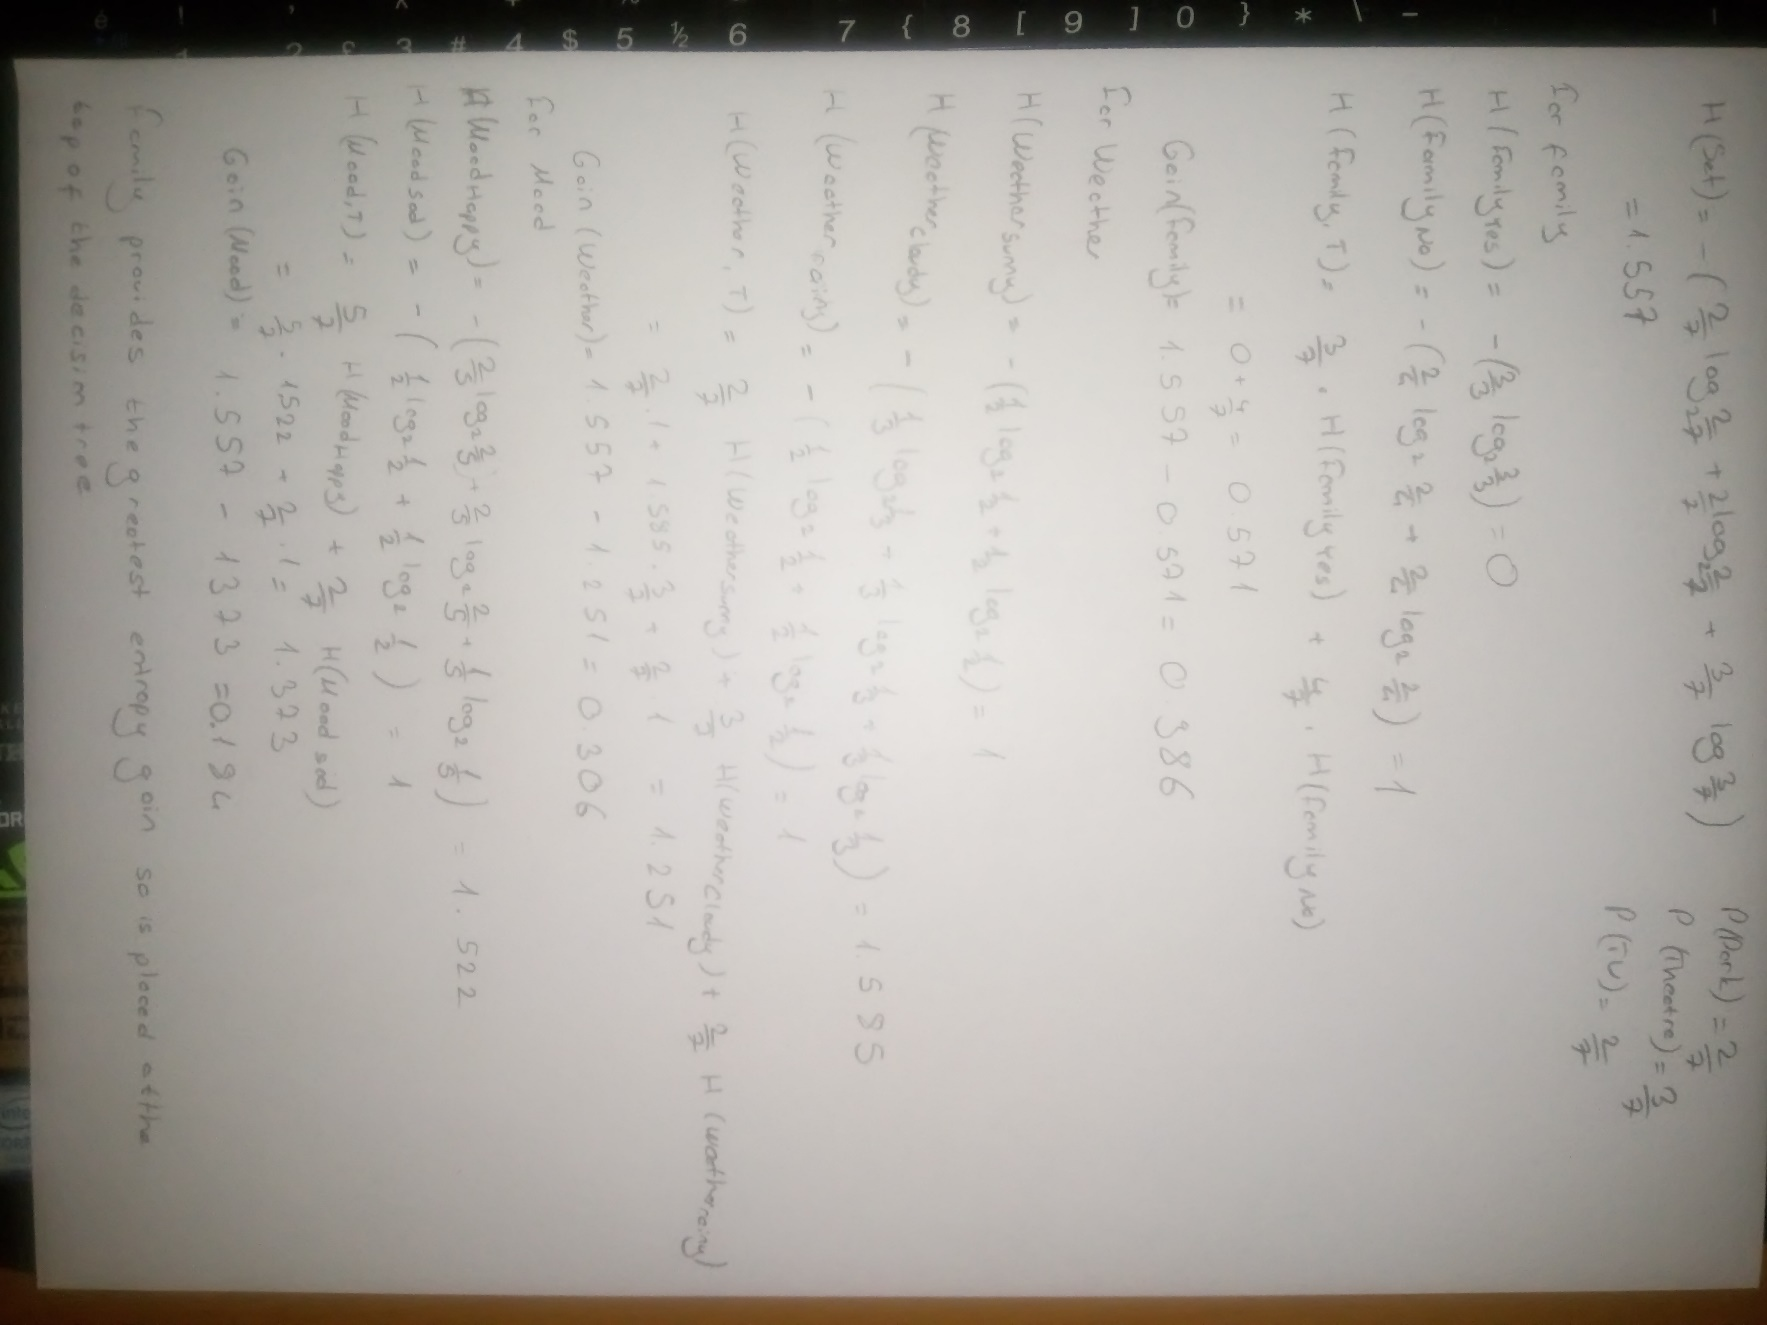 H(Set) = - (2/7 log₂ 2/7 + 2/7 log₂ 2/7 + 3/7 log 3/7)
= 1.557
P(Park) = 2/7
P(Theatre) = 3/7
P(TV) = 2/7
For family
H(Family Yes) = -(3/3 log₂ 3/3) = 0
H(Family No) = -(2/4 log₂ 2/4 + 2/4 log₂ 2/4) = 1
H(Family, T) = 3/7 . H(Family Yes) + 4/7 . H(Family No)
= 0 + 4/7 = 0.571
Gain(Family) = 1.557 - 0.571 = 0.986
For Weather
H(Weather sunny) = - (1/2 log₂ 1/2 + 1/2 log₂ 1/2) = 1
H(Weather cloudy) = - (1/3 log₂ 1/3 + 1/3 log₂ 1/3 + 1/3 log₂ 1/3) = 1.585
H(Weather rainy) = - (1/2 log₂ 1/2 + 1/2 log₂ 1/2) = 1
H(Weather, T) = 2/7 H(Weather sunny) + 3/7 H(Weather cloudy) + 2/7 H(Weather rainy)
= 2/7 . 1 + 1.585 . 3/7 + 2/7 . 1 = 1.251
Gain(Weather) = 1.557 - 1.251 = 0.306
For Mood
H(Mood Happy) = - (2/5 log₂ 2/5 + 2/5 log₂ 2/5 + 1/5 log₂ 1/5) = 1.522
H(Mood sad) = - (1/2 log₂ 1/2 + 1/2 log₂ 1/2) = 1
H(Mood, T) = 5/7 H(Mood Happy) + 2/7 H(Mood sad)
= 5/7 . 1522 + 2/7 . 1 = 1.373
Gain(Mood) = 1.557 - 1373 = 0.184
Family provides the greatest entropy gain so is placed at the
top of the decision tree
# 4 $ 5 ½ 6 7 { 8 [ 9 ] 0 } * \ -